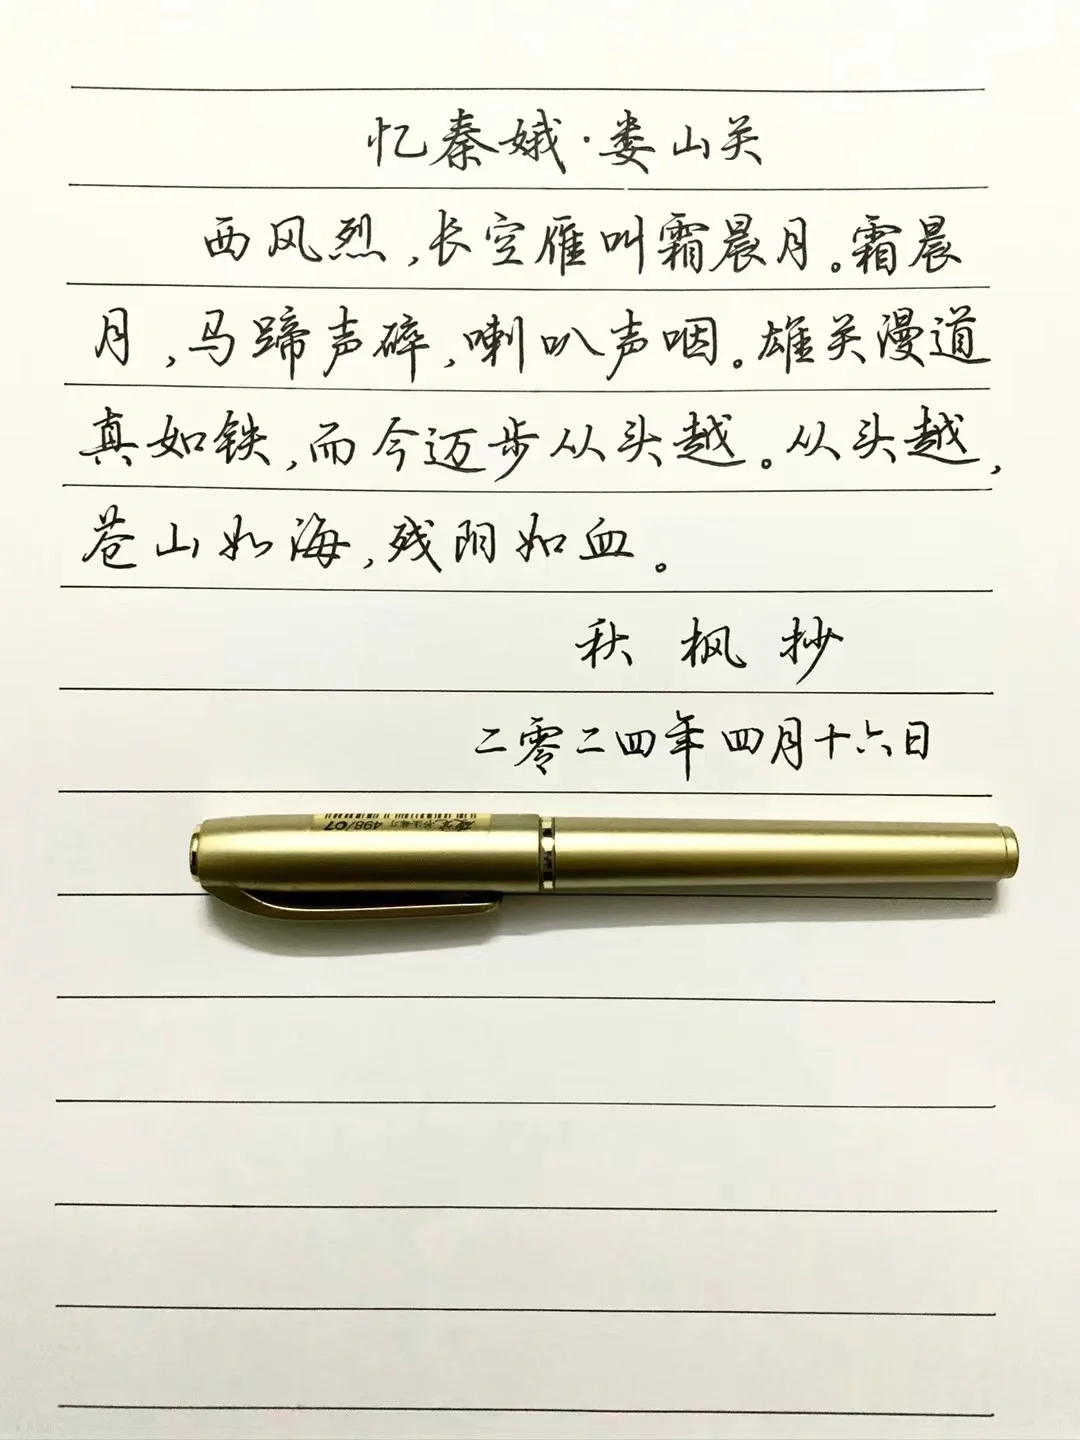 忆秦娥·娄山关
西风烈,长空雁叫霜晨月。霜晨
月,马蹄声碎,喇叭声咽。雄关漫道
真如铁,而今迈步从头越。从头越,
苍山如海,残阳如血。
秋枫抄
二零二四年四月十六日
498/07